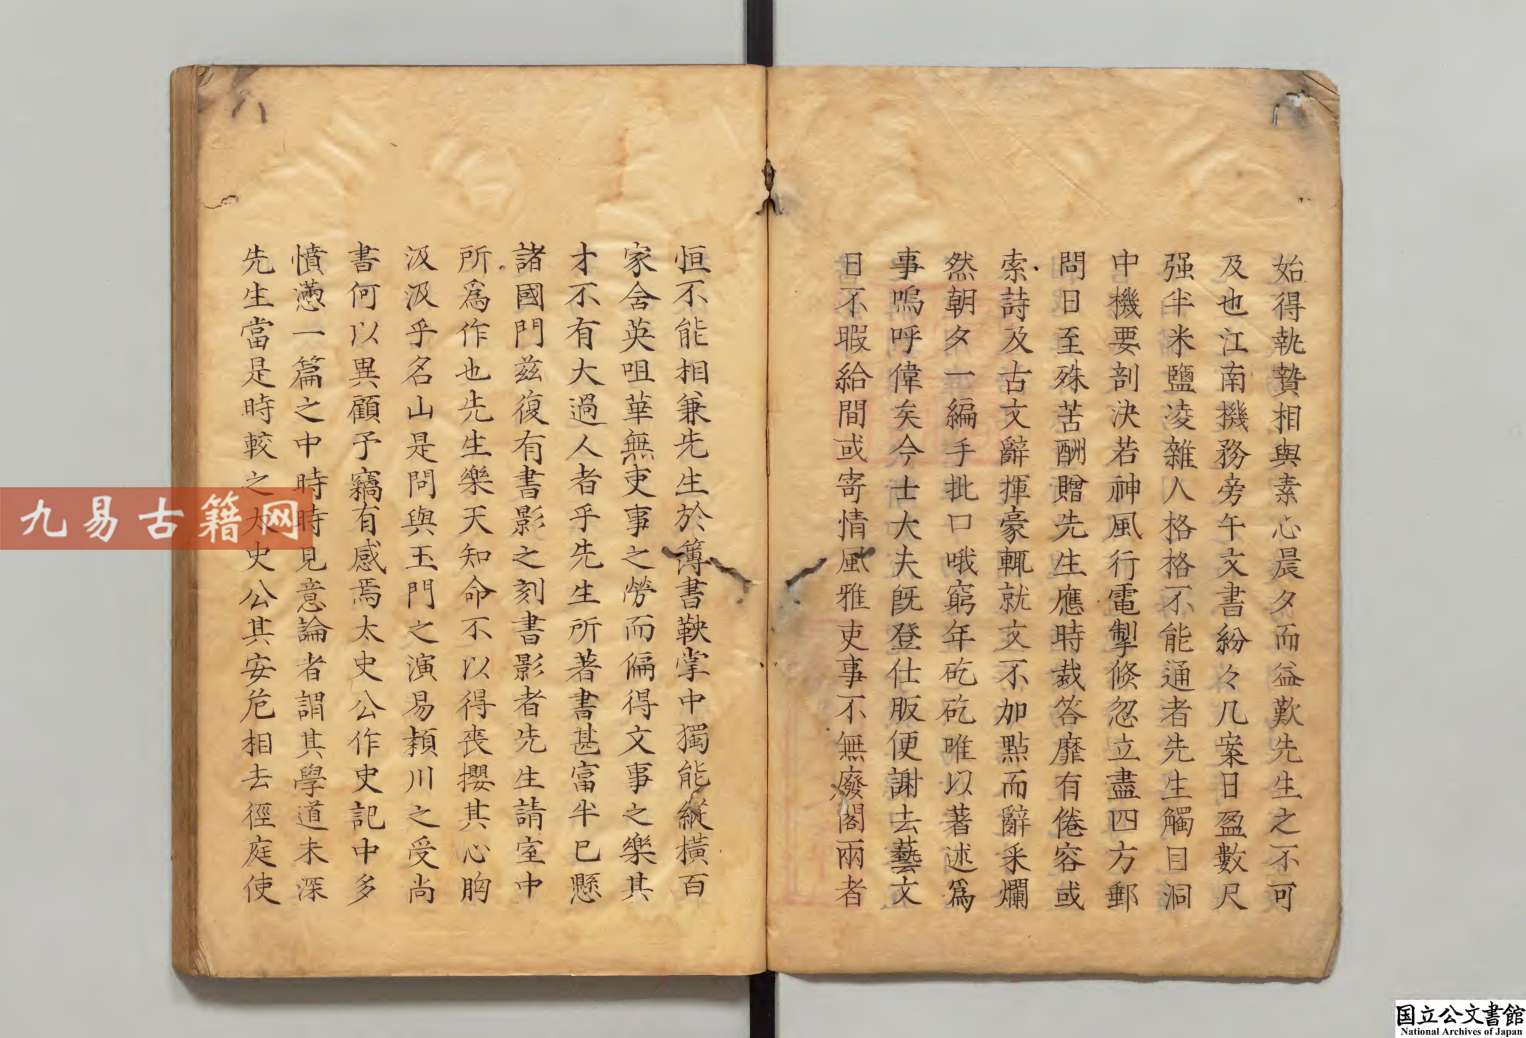 始得執贄相與素心晨夕而益歎先生之不可
及也江南機務旁午文書紛々几案日盈數尺
强半米鹽凌雜人格格不能通者先生觸目洞
中機要剖決若神風行電掣倐忽立盡四方郵
問日至殊苦酬贈先生應時裁答靡有倦容或
索詩及古文辭揮豪輒就文不加點而辭采爛
然朝夕一編手批口哦窮年矻矻唯以著述爲
事嗚呼偉矣今士大夫旣登仕版便謝去藝文
日不暇給間或寄情風雅吏事不無廢閣兩者
恒不能相兼先生於簿書鞅掌中獨能縱橫百
家含英咀華無吏事之勞而偏得文事之樂其
才不有大過人者乎先生所著書甚富半已懸
諸國門茲復有書影之刻書影者先生請室中
所爲作也先生樂天知命不以得喪攖其心胸
汲汲乎名山是問與玉門之演易潁川之受尚
書何以異顧予竊有感焉太史公作史記中多
憤懣一篇之中時時見意論者謂其學道未深
先生當是時較之太史公其安危相去徑庭使
九易古籍网
国立公文書館
National Archives of Japan